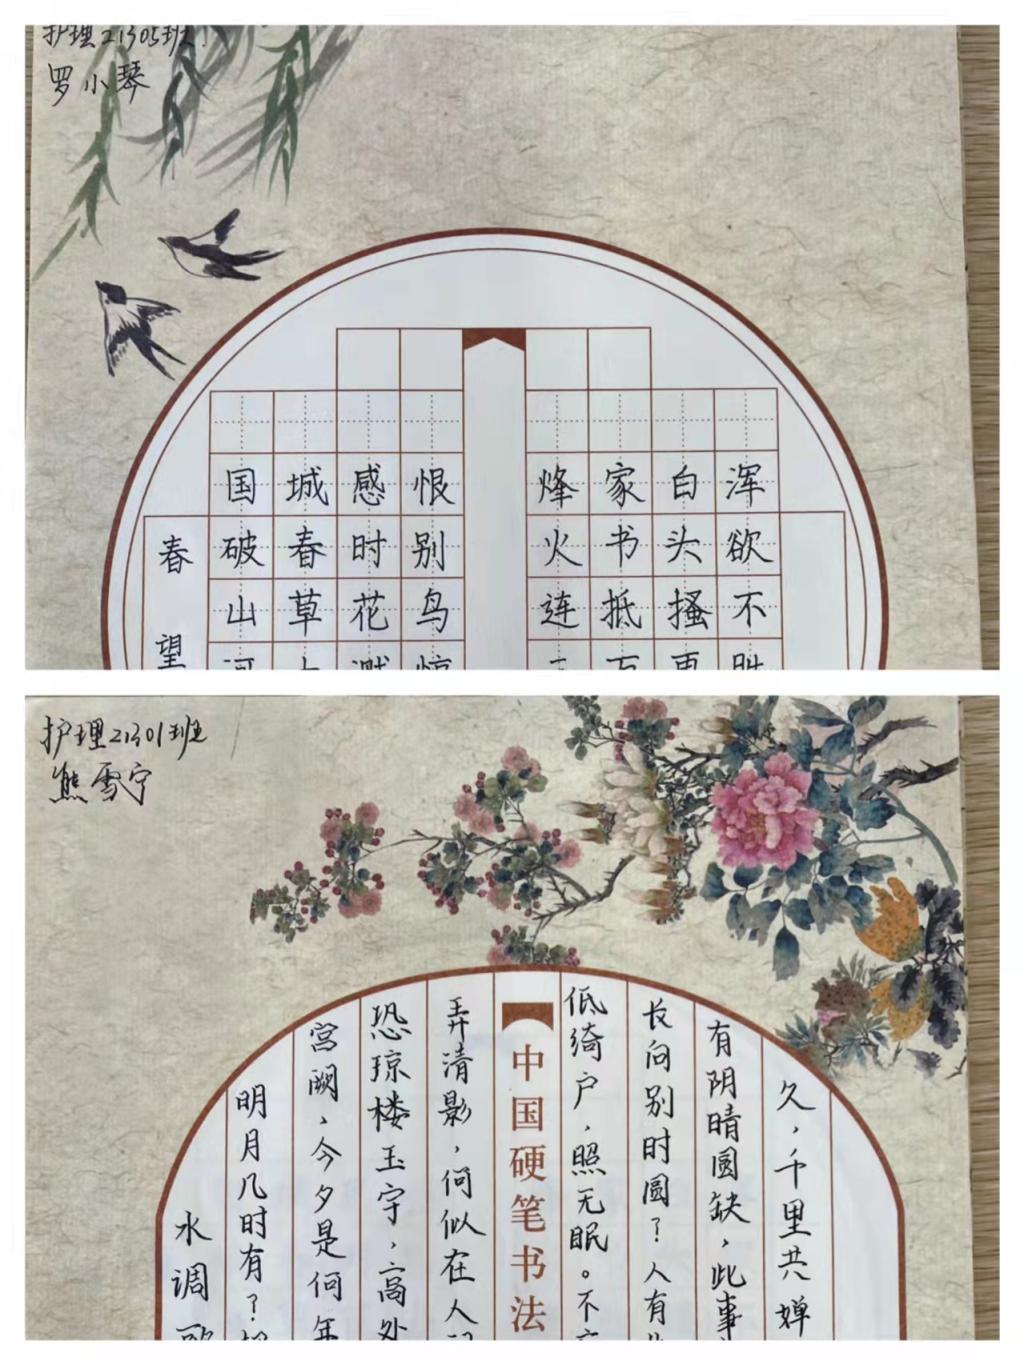 护理21305班
罗小琴
春望
国破山
城春草
感时花
恨别鸟
烽火连
家书抵
白头搔
浑欲不
护理21301班
熊雪宁
水调歌
明月几时有？
宫阙，今夕是何年
恐琼楼玉宇，高处
弄清影，何似在人
中国硬笔书法
低绮户，照无眠。不
长向别时圆？人有
有阴晴圆缺，此事
久，千里共婵